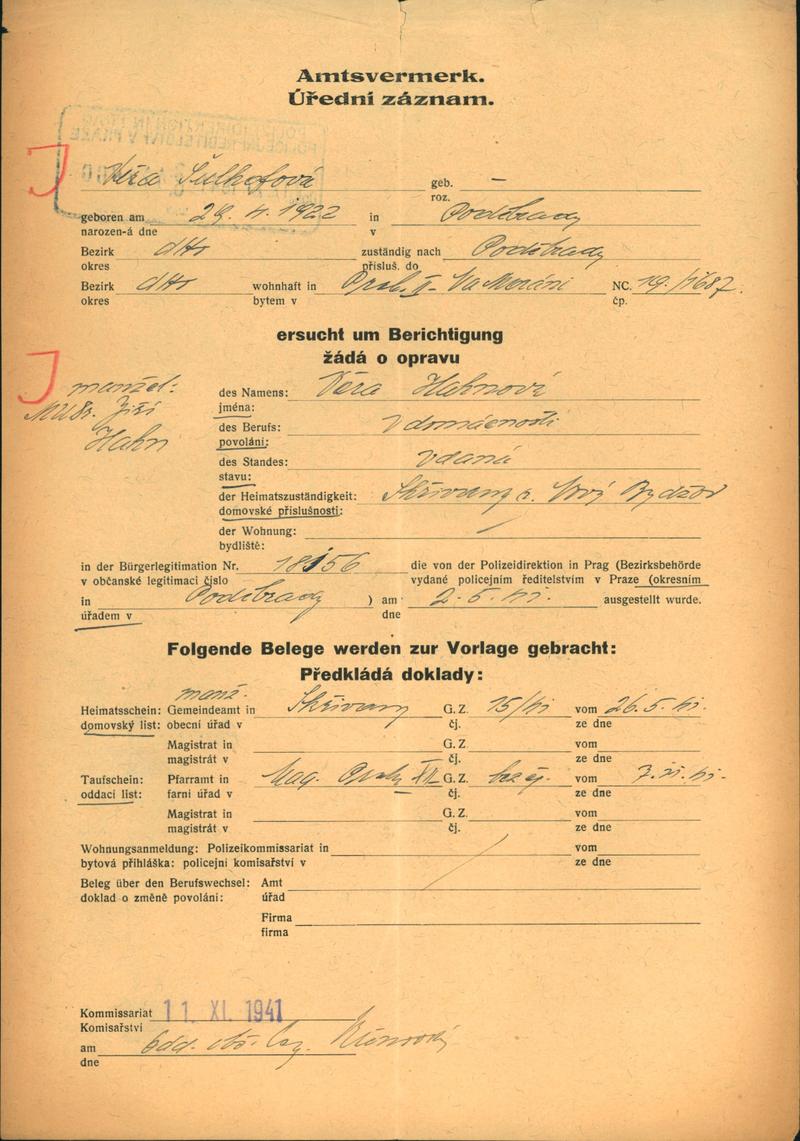 Amtsvermerk.
Úřední záznam.
J
Věra Šulhofová geb. –
roz.
geboren am 29. 4. 1922 in Poděbrady
narozen-á dne v
Bezirk dtto zuständig nach Poděbrady
okres přísluš. do
Bezirk dtto wohnhaft in Praha II - Na Moráni NC. 19./1687.
okres bytem v čp.
ersucht um Berichtigung
žádá o opravu
J
manžel:
MUDr. Jiří
Hahn
des Namens: Věra Hahnová
jména:
des Berufs: v domácnosti
povolání:
des Standes: vdaná
stavu:
der Heimatszuständigkeit: Skřivany Nový Bydžov
domovské příslušnosti:
der Wohnung:
bydliště:
in der Bürgerlegitimation Nr. 18156 die von der Polizeidirektion in Prag (Bezirksbehörde
v občanské legitimaci číslo vydané policejním ředitelstvím v Praze (okresním
in Poděbrady ) am 2. 5. 41. ausgestellt wurde.
úřadem v dne
Folgende Belege werden zur Vorlage gebracht:
Předkládá doklady:
manž.
Heimatsschein: Gemeindeamt in Skřivany G. Z. 15/41 vom 26. 5. 41.
domovský list: obecní úřad v čj. ze dne
Magistrat in G. Z. vom
magistrát v čj. ze dne
Taufschein: Pfarramt in Mag. Praha XII G. Z. bez čj. vom 7. 41.
oddací list: farní úřad v čj. ze dne
Magistrat in G. Z. vom
magistrát v čj. ze dne
Wohnungsanmeldung: Polizeikommissariat in vom
bytová přihláška: policejní komisařství v ze dne
Beleg über den Berufswechsel: Amt
doklad o změně povolání: úřad
Firma
firma
Kommissariat 11. XI. 1941
Komisařství
am
dne